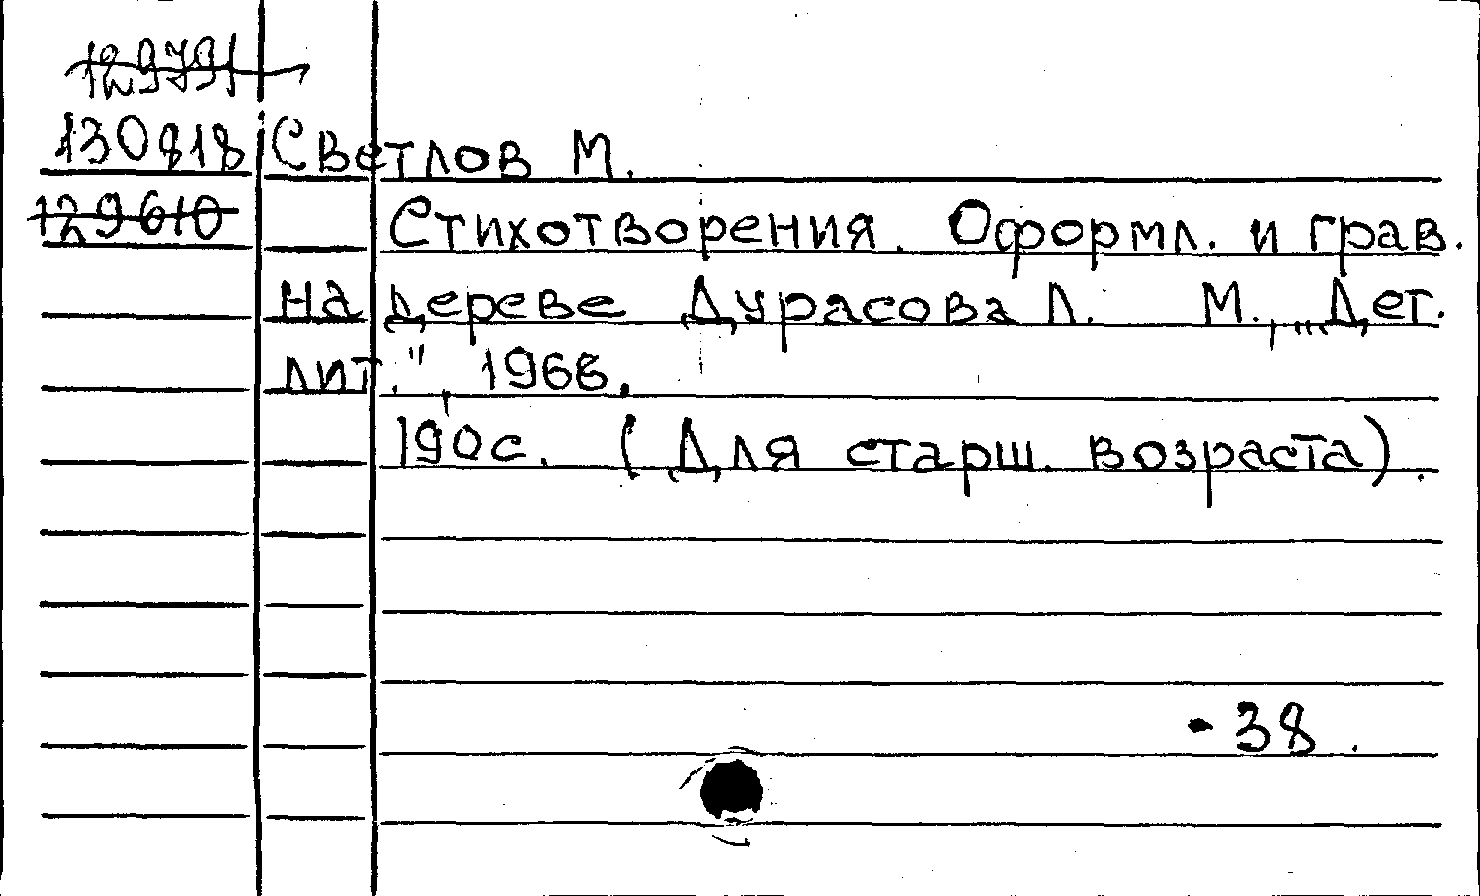 129791
130818 Светлов М.
129610 Стихотворения. Оформл. и грав.
на дереве Дурасова Л. М., „Дет.
лит.", 1968.
190с. (Для старш. возраста).
-38.